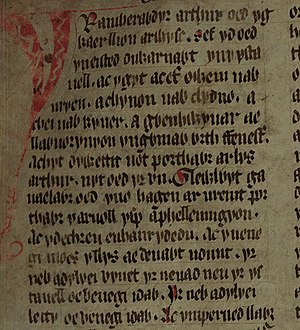 Yr amheraỽdyr arthur oed yg
kaer llion ar ỽysc. Sef yd oed
yn eisted diwarnaỽt yn y ysta
uell. ac ygyt ac ef owein uab
uryen. a chynon uab clydno. a
chei uab kyner. a gỽenhỽyuar ae
llaỽuorynyon yn gỽniaỽ ỽrth ffenestr.
A chyt dywettit uot porthaỽr ar lys
arthur. nyt oed yr un. Gleỽlỽyt ga
uaelaỽr oed yno hagen ar ureint por
thaỽr y aruoll ysp a phellenigyon.
ac y dechreu eu hanrydedu. ac y uene
gi moes y llys ae deuaỽt udunt. yr
neb a dylyei vynet yr neuad neu yr ys
tauell oe venegi idaỽ. yr neb a dylyei
letty oe venegi idaỽ. Ac ymperued llaỽr